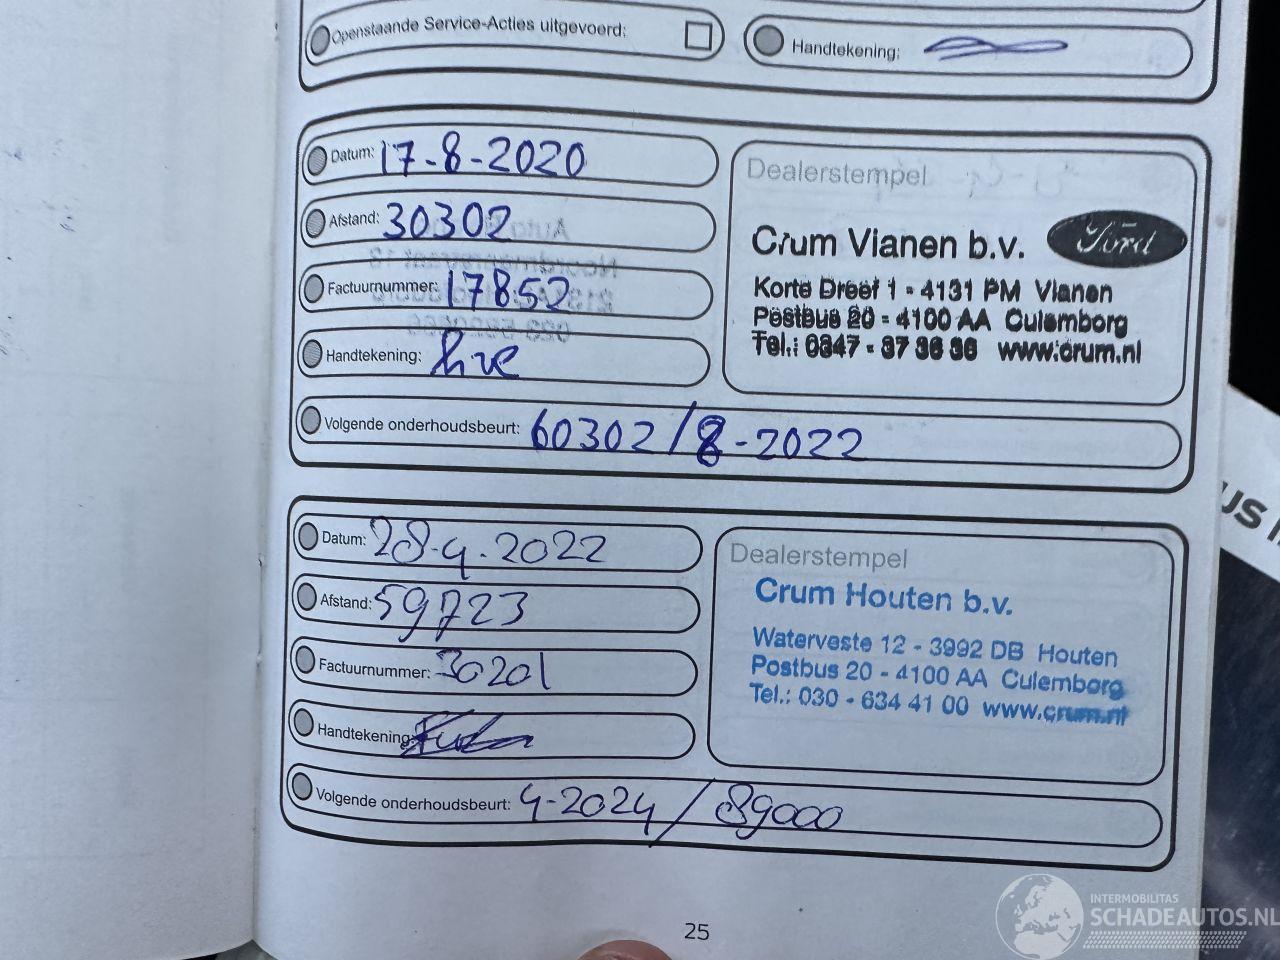 Openstaande Service-Acties uitgevoerd:
Handtekening:
Datum: 17-8-2020
Afstand: 30302
Factuurnummer: 17852
Handtekening:
Volgende onderhoudsbeurt: 60302/8-2022
Dealerstempel
Crum Vianen b.v.
Ford
Korte Dreef 1 - 4131 PM Vianen
Postbus 20 - 4100 AA Culemborg
Tel.: 0347 - 37 36 36 www.crum.nl
Datum: 28-4-2022
Afstand: 59723
Factuurnummer: 30201
Handtekening:
Volgende onderhoudsbeurt: 4-2024 / 89000
Dealerstempel
Crum Houten b.v.
Waterveste 12 - 3992 DB Houten
Postbus 20 - 4100 AA Culemborg
Tel.: 030 - 634 41 00 www.crum.nl
25
INTERMOBILITAS
SCHADEAUTOS.NL